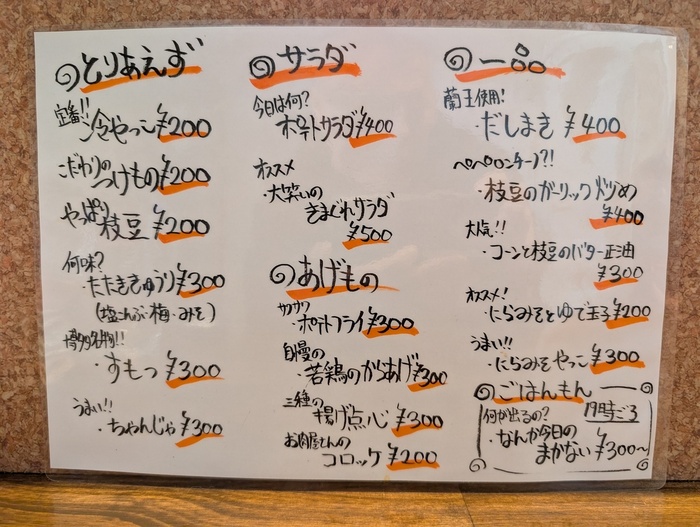 とりあえず
定番!!
冷やっこ ¥200
こだわりの
つけもの ¥200
やっぱり
枝豆 ¥200
何味?
・たたききゅうり ¥300
(塩こんぶ・梅・みそ)
博多名物!!
・すもつ ¥300
うまい!!
・ちゃんじゃ ¥300
サラダ
今日は何?
ポテトサラダ ¥400
オススメ
・大笑いの
きまぐれサラダ
¥500
あげもの
サクサク
・ポテトフライ ¥300
自慢の
若鶏のからあげ ¥300
三種の
・揚げ点心 ¥300
お肉屋さんの
コロッケ ¥200
一品
蘭王使用!
・だしまき ¥400
ペペロンチーノ?!
・枝豆のガーリック炒め
¥400
大人気!!
・コーンと枝豆のバター正油
¥300
オススメ!
・にらみそとゆで玉子 ¥200
うまい!!
・にらみそやっこ ¥300
ごはんもん
何が出るの?
19時ごろ
・なんか今日の
まかない ¥300~